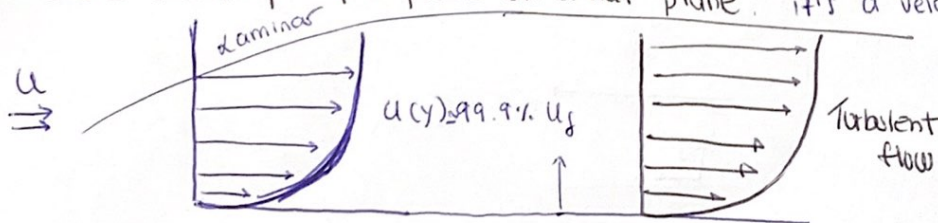 plane. it's a velo
Laminar
U
U(y)≈99.9% Uf
Turbulent
flow